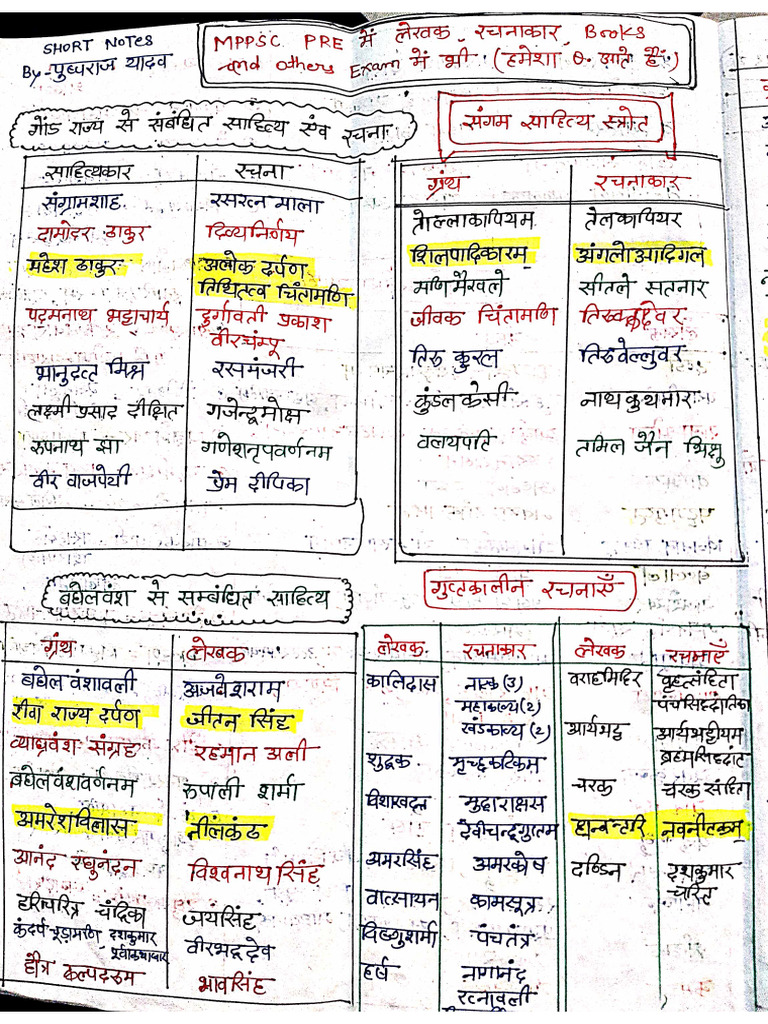 SHORT NOTES
By - पुष्पराज यादव
MPPSC PRE में लेखक, रचनाकार, Books
and others Exam में भी (हमेशा Q. आते हैं)
गोंड राज्य से संबंधित साहित्य एंव रचना
साहित्यकार रचना
संग्रामशाह रसरत्न माला
दामोदर ठाकुर दिव्यनिर्णय
महेश ठाकुर अलोक दर्पण
तिथितत्व चिंतामणि
पदमनाथ भट्टाचार्य दुर्गावती प्रकाश
वीरचंम्पू
भानुदत्त मिश्र रसमंजरी
लक्ष्मी प्रसाद दीक्षित गजेन्द्रमोक्ष
रुपनाथ झा गणेशनृपवर्णनम
वीर वाजपेयी प्रेम दीपिका
संगम साहित्य स्त्रोत
ग्रंथ रचनाकार
तोल्लाकापियम तेलकापियर
शिलपादिकारम् अंगलोआदिगल
मणिमैखले सीतले सतनार
जीवक चिंतामणि
तिरु कुरल तिरुवेल्लुवर
कुंडलकेसी नाथकुथमोर
वलयपति तमिल जैन भिक्षु
बघेलवंश से सम्बंधित साहित्य
ग्रंथ लेखक
बघेल वंशावली अजवेशराम
रीवा राज्य दर्पण जीतन सिंह
व्याघ्रवंश संग्रह रहमान अली
बघेलवंशवर्णनम रुपाली शर्मा
अमरेशविलास नीलकंठ
आनंद रघुनंदन विश्वनाथसिंह
हरिचरित्र चंद्रिका जयसिंह
कंदर्प चूड़ामणि दशकुमार वीरभद्रदेव
हौत्र कल्पद्रुम भावसिंह
गुप्तकालीन रचनाएँ
लेखक रचनाकार
कालिदास नाटक (3)
महाकाव्य (2)
खंडकाव्य (2)
शुद्रक मृच्छकटिकम
विशाखदत्त मुद्राराक्षस
देवीचन्द्रगुप्तम
अमरसिंह अमरकोष
वात्सायन कामसूत्र
विष्णुशर्मा पंचतंत्र
हर्ष नागानंद
रत्नावली
लेखक रचनाएँ
वराहमिहिर वृहत्संहिता
पंचसिद्धांतिका
आर्यभट्ट आर्यभट्टीयम
ब्रहमसिद्धांत
चरक चरक संहिता
धन्वन्तरि नवनीतकम्
दण्डिन दशकुमार
चरित